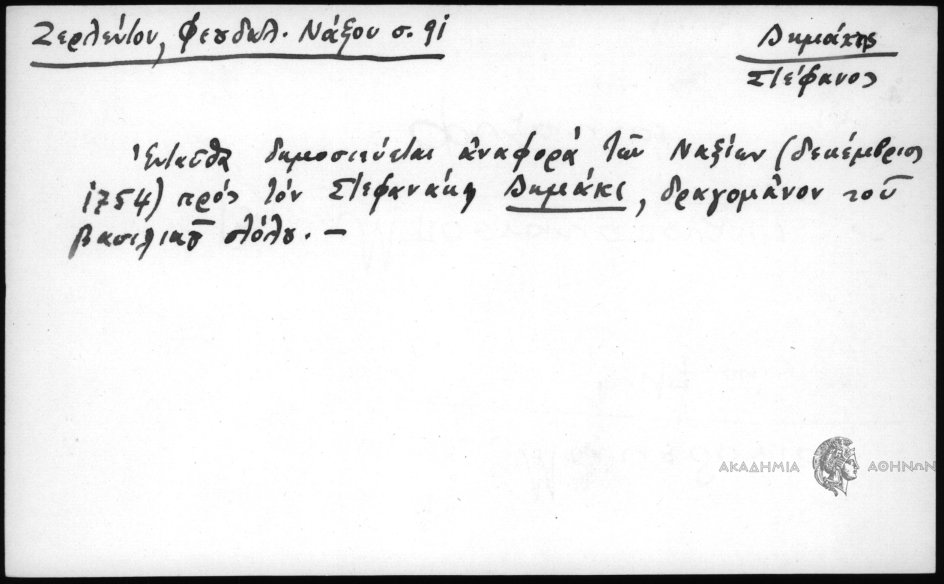 Ζερλέντου, Φεουδαλ. Νάξου σ. 91
Δημάκης
Στέφανος
Ἐνταῦθα δημοσιεύεται ἀναφορά τῶν Ναξίων (δεκέμβριος
1754) πρός τόν Στεφανάκη Δημάκι, δραγομᾶνον τοῦ
βασιλικοῦ στόλου. —
ΑΚΑΔΗΜΙΑ ΑΘΗΝΩΝ